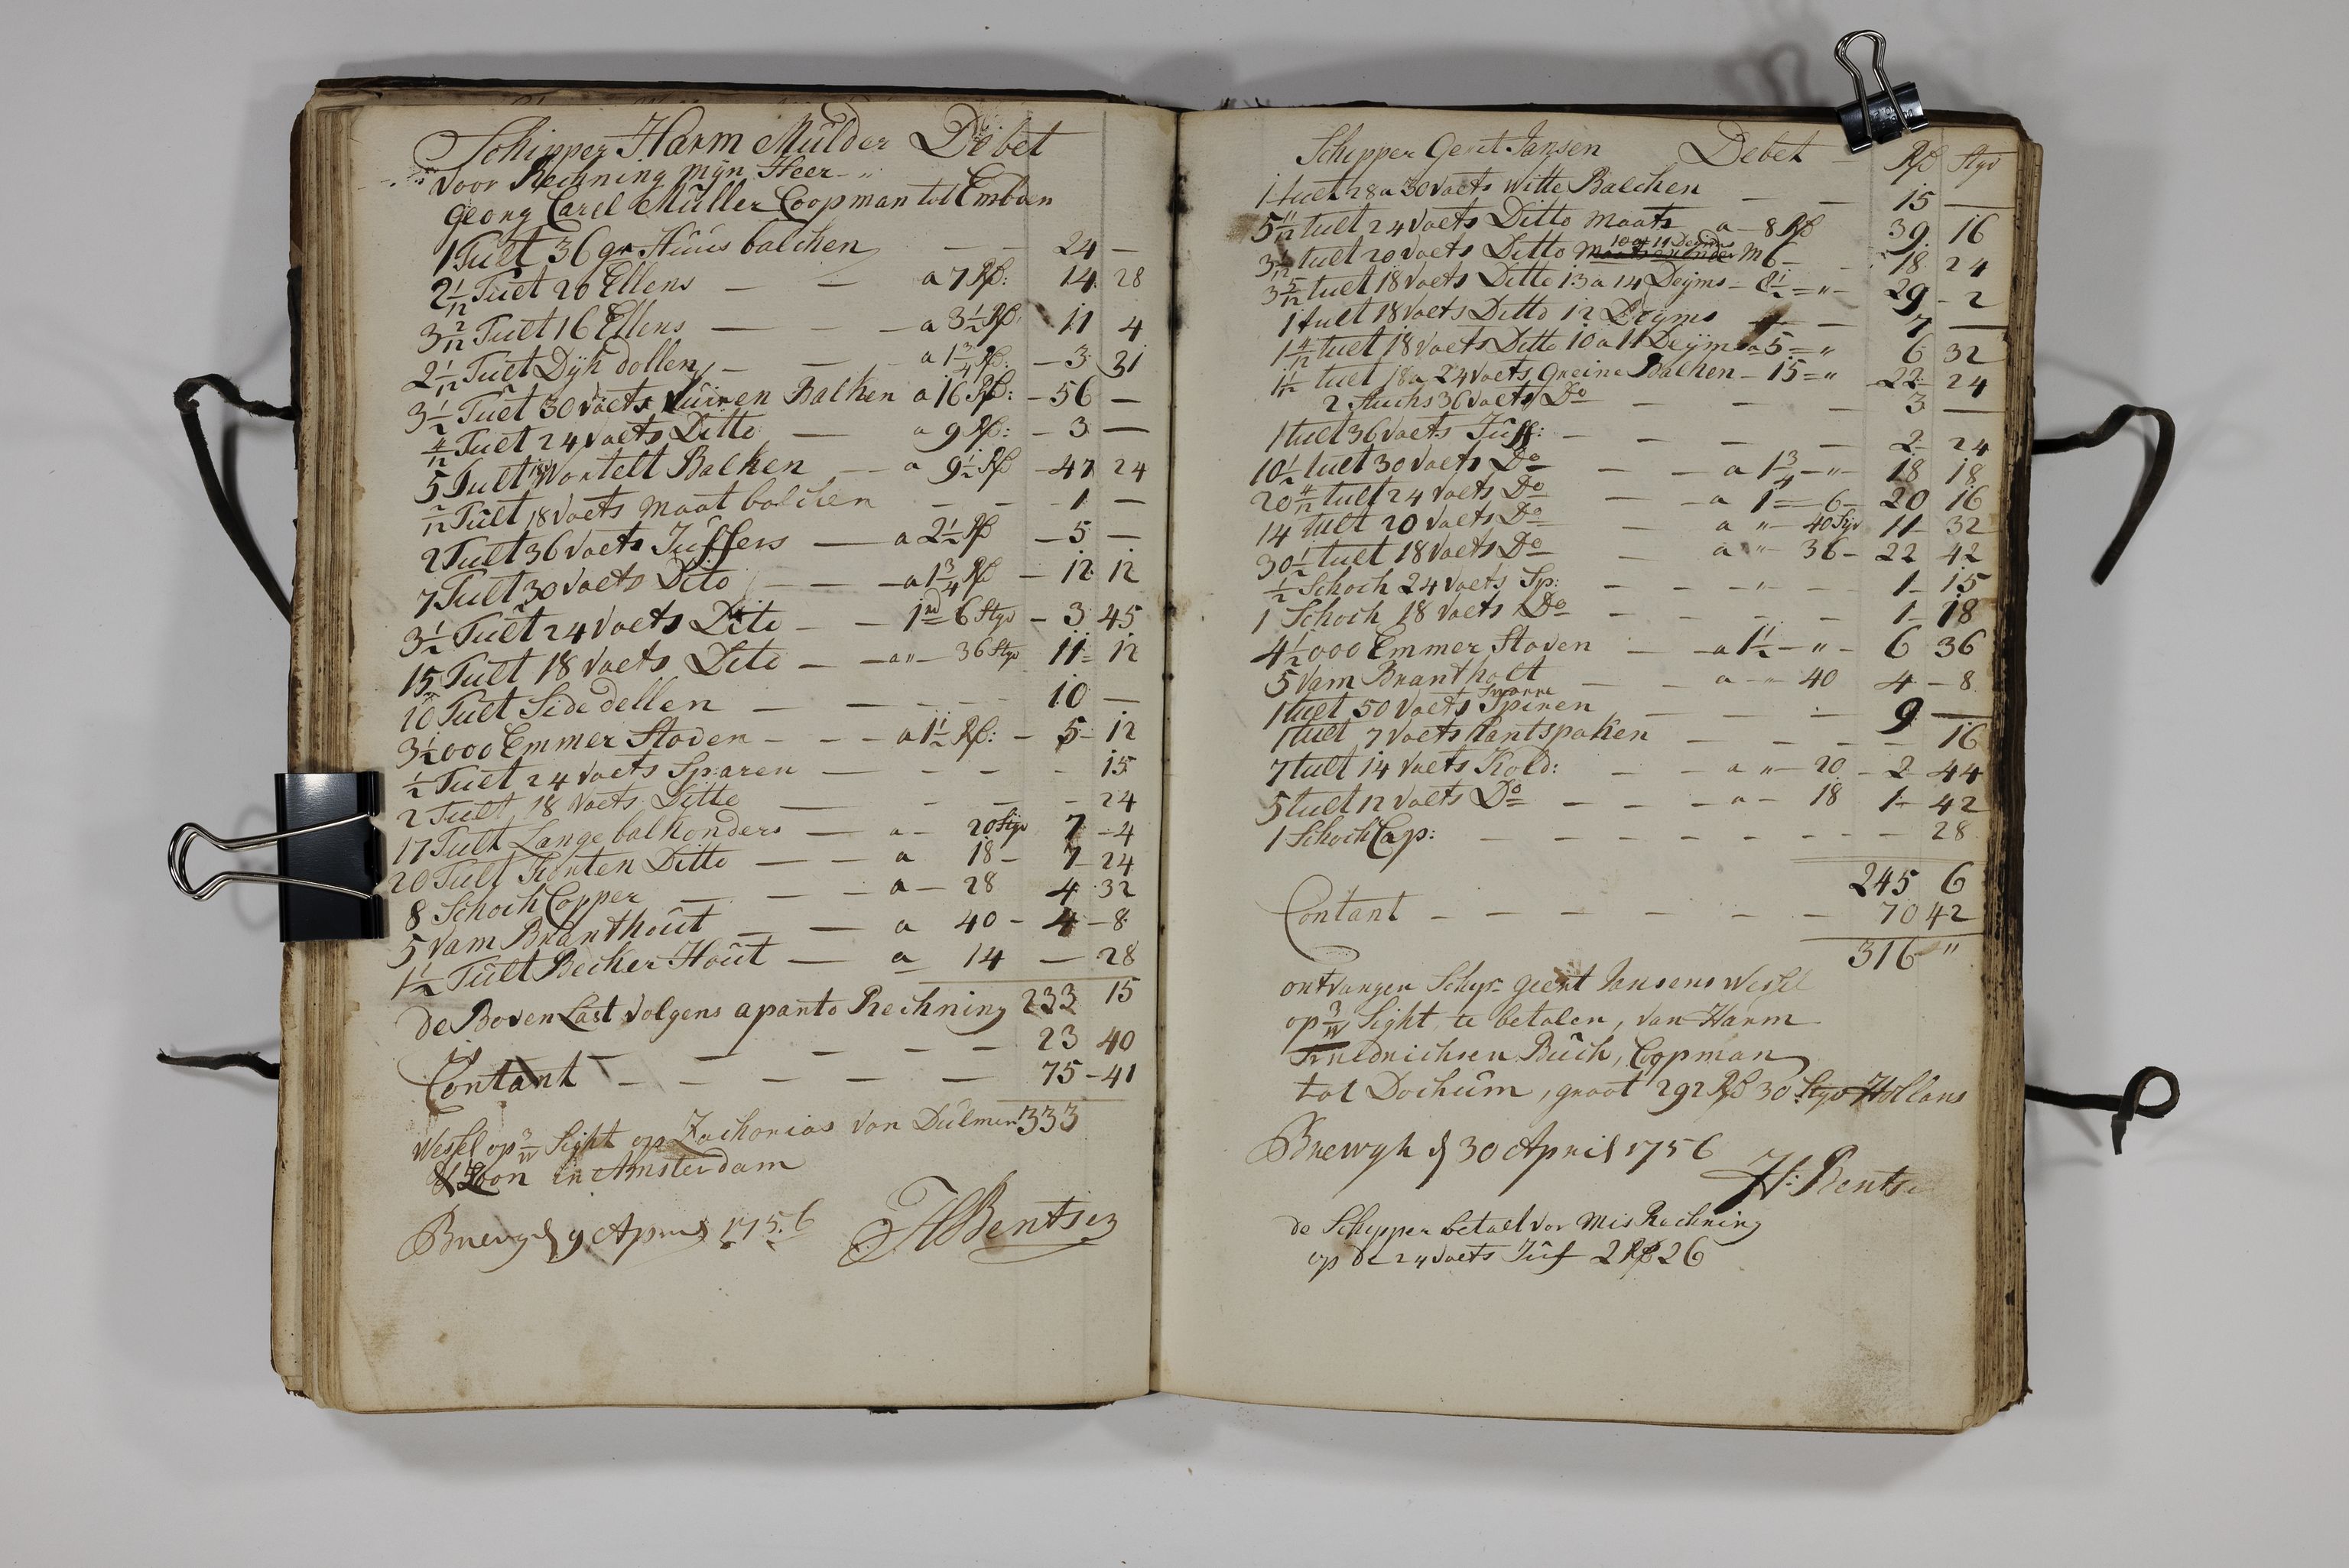 Schipper Harm Mülder Debet
Voor Rechning mijn Heer
Georg Carel Müller Coopman tot Embden
1 Tult 36 gr Hüüs balchen — — 24 —
2 1/12 Tült 20 Ellens — — a 7 Rß: 14 28
3 2/12 Tült 16 Ellens — — a 3 1/2 Rß: 11 4
2 1/12 Tült Dijk dollen — — a 1 3/4 Rß: — 3 31
3 1/2 Tült 30 Voets Vüiren Balken a 16 Rß: — 56 —
4/12 Tült 24 Voets Ditto — a 9 Rß: — 3 —
5 Tult 18 Wortelt Balken — a 9 1/2 Rß — 47 24
2/12 Tült 18 Voets Maat balchen — — 1 —
2 Tült 36 Voets Jüffers — a 2 1/2 Rß — 5 —
7 Tült 30 Voets Dito — — a 1 3/4 Rß — 12 12
3 1/2 Tült 24 Voets Dito — — 1 rd 6 Stys — 3 45
15 Tült 18 Voets Dito — — a " — 36 Stys 11 12
10 Tült Sidedellen — — — 10 —
3 1/2 000 Emmer Staven — — a 1 1/2 Rß: — 5 — 12
1/2 Tült 24 Voets Sparen — — — 15
2 Tült 18 Voets Ditto — — — 24
17 Tült Lange balkonders — a — 20 Stys 7 — 4
20 Tült Korten Ditto — — a 18 — 7 — 24
8 Schoch Copper — — a — 28 4 32
5 Vam Branthoüt — — a 40 — 4 — 8
1 1/2 Tült Becker Hoüt — a 14 — 28
de Boven Last Volgens aparto Rechning 233 15
23 40
Contant — — — — — 75 — 41
Wessel op 3/W Sight op Zacharias Van Dülmen 333
& Zoon in Amsterdam
Brevyk d 9 April 1756 HBentsen
Schipper Gerit Jansen Debet — Rß Stys
1 tult 28 a 30 Voets Witte Balchen — — 15 —
5 11/12 tult 24 Voets Ditto Maats a — 8 Rß 39 16
10 a 11 Deyms
3 1/12 tult 20 Voets Ditto M 6 — 18 24
3 5/12 tult 18 Voets Ditto 13 a 14 Deyms — 8 1/2 = " — 29 — 2
1 tult 18 Voets Ditto 12 Deyms — 7 —
1 4/12 tult 18 Voets Ditto 10 a 11 Deyms a 5 = " 6 32
1 1/2 tult 18 a 24 Voets Greine Balken — 15 = " 22 24
2 Stuchs 36 Voets Do — — — 3 —
1 tult 36 Voets Jüff: — — — 2 24
10 1/2 tult 30 Voets Do — — a 1 3/4 — " — 18 18
20 4/12 tult 24 Voets Do — a 1 = 6 — 20 16
14 tult 20 Voets Do — a " — 40 Sys 11 — 32
30 1/2 tult 18 Voets Do — a " — 36 — 22 42
1/2 Schoch 24 Voets Sp: — — " — — 1 — 15
1 Schoch 18 Voets Do — — — — 1 — 18
4 1/2 000 Emmer Staven — a 1 1/2 — " — 6 36
5 Vam Brantholt — — a — " 40 4 — 8
Sparre
1 tult 50 Voets Spiren — — — 9 —
1 tult 7 Voets Hantspaken — — — 16
7 tult 14 Voets Kold: — — a " — 20 — 2 — 44
5 tult 12 Voets Do — — — a — 18 1 — 42
1 Schoch Cap: — — — — — — 28
245 6
Contant — — — — — — 70 42
316 "
ontvangen Schyr Geert Jansens Wessel
op 3/W Sight te betalen, Van Harm
Friedrichsen Büch, Coopman
tot Dochüm, groot 292 Rß 30 Stys Hollans
Brevyk d 30 April 1756
H: Bentse
de Schipper betael Vor Mis Rechning
op de 24 Voets Jüf 2 Rß 26